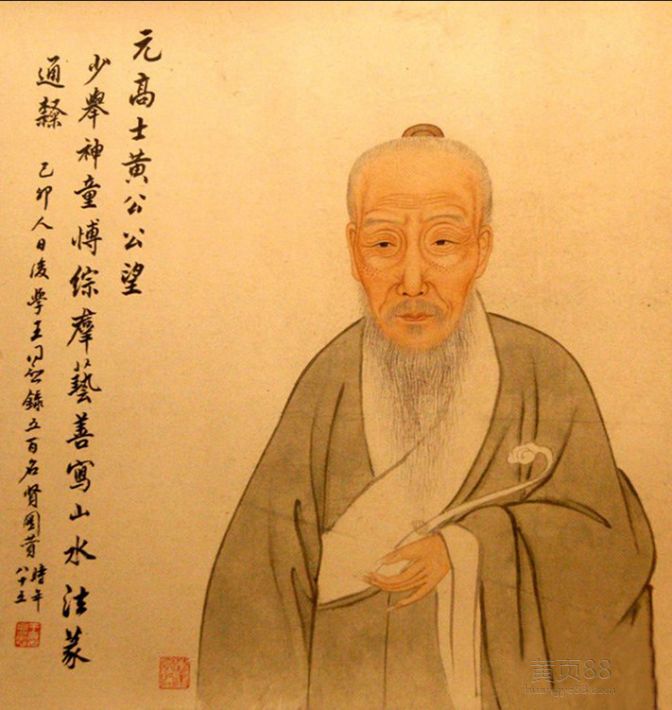 元高士黄公公望
少舉神童博综羣藝善寫山水法篆
通隸
己卯人日後學王錄五百名賢圖贊時年
八十五
黄页88
huangye88.com